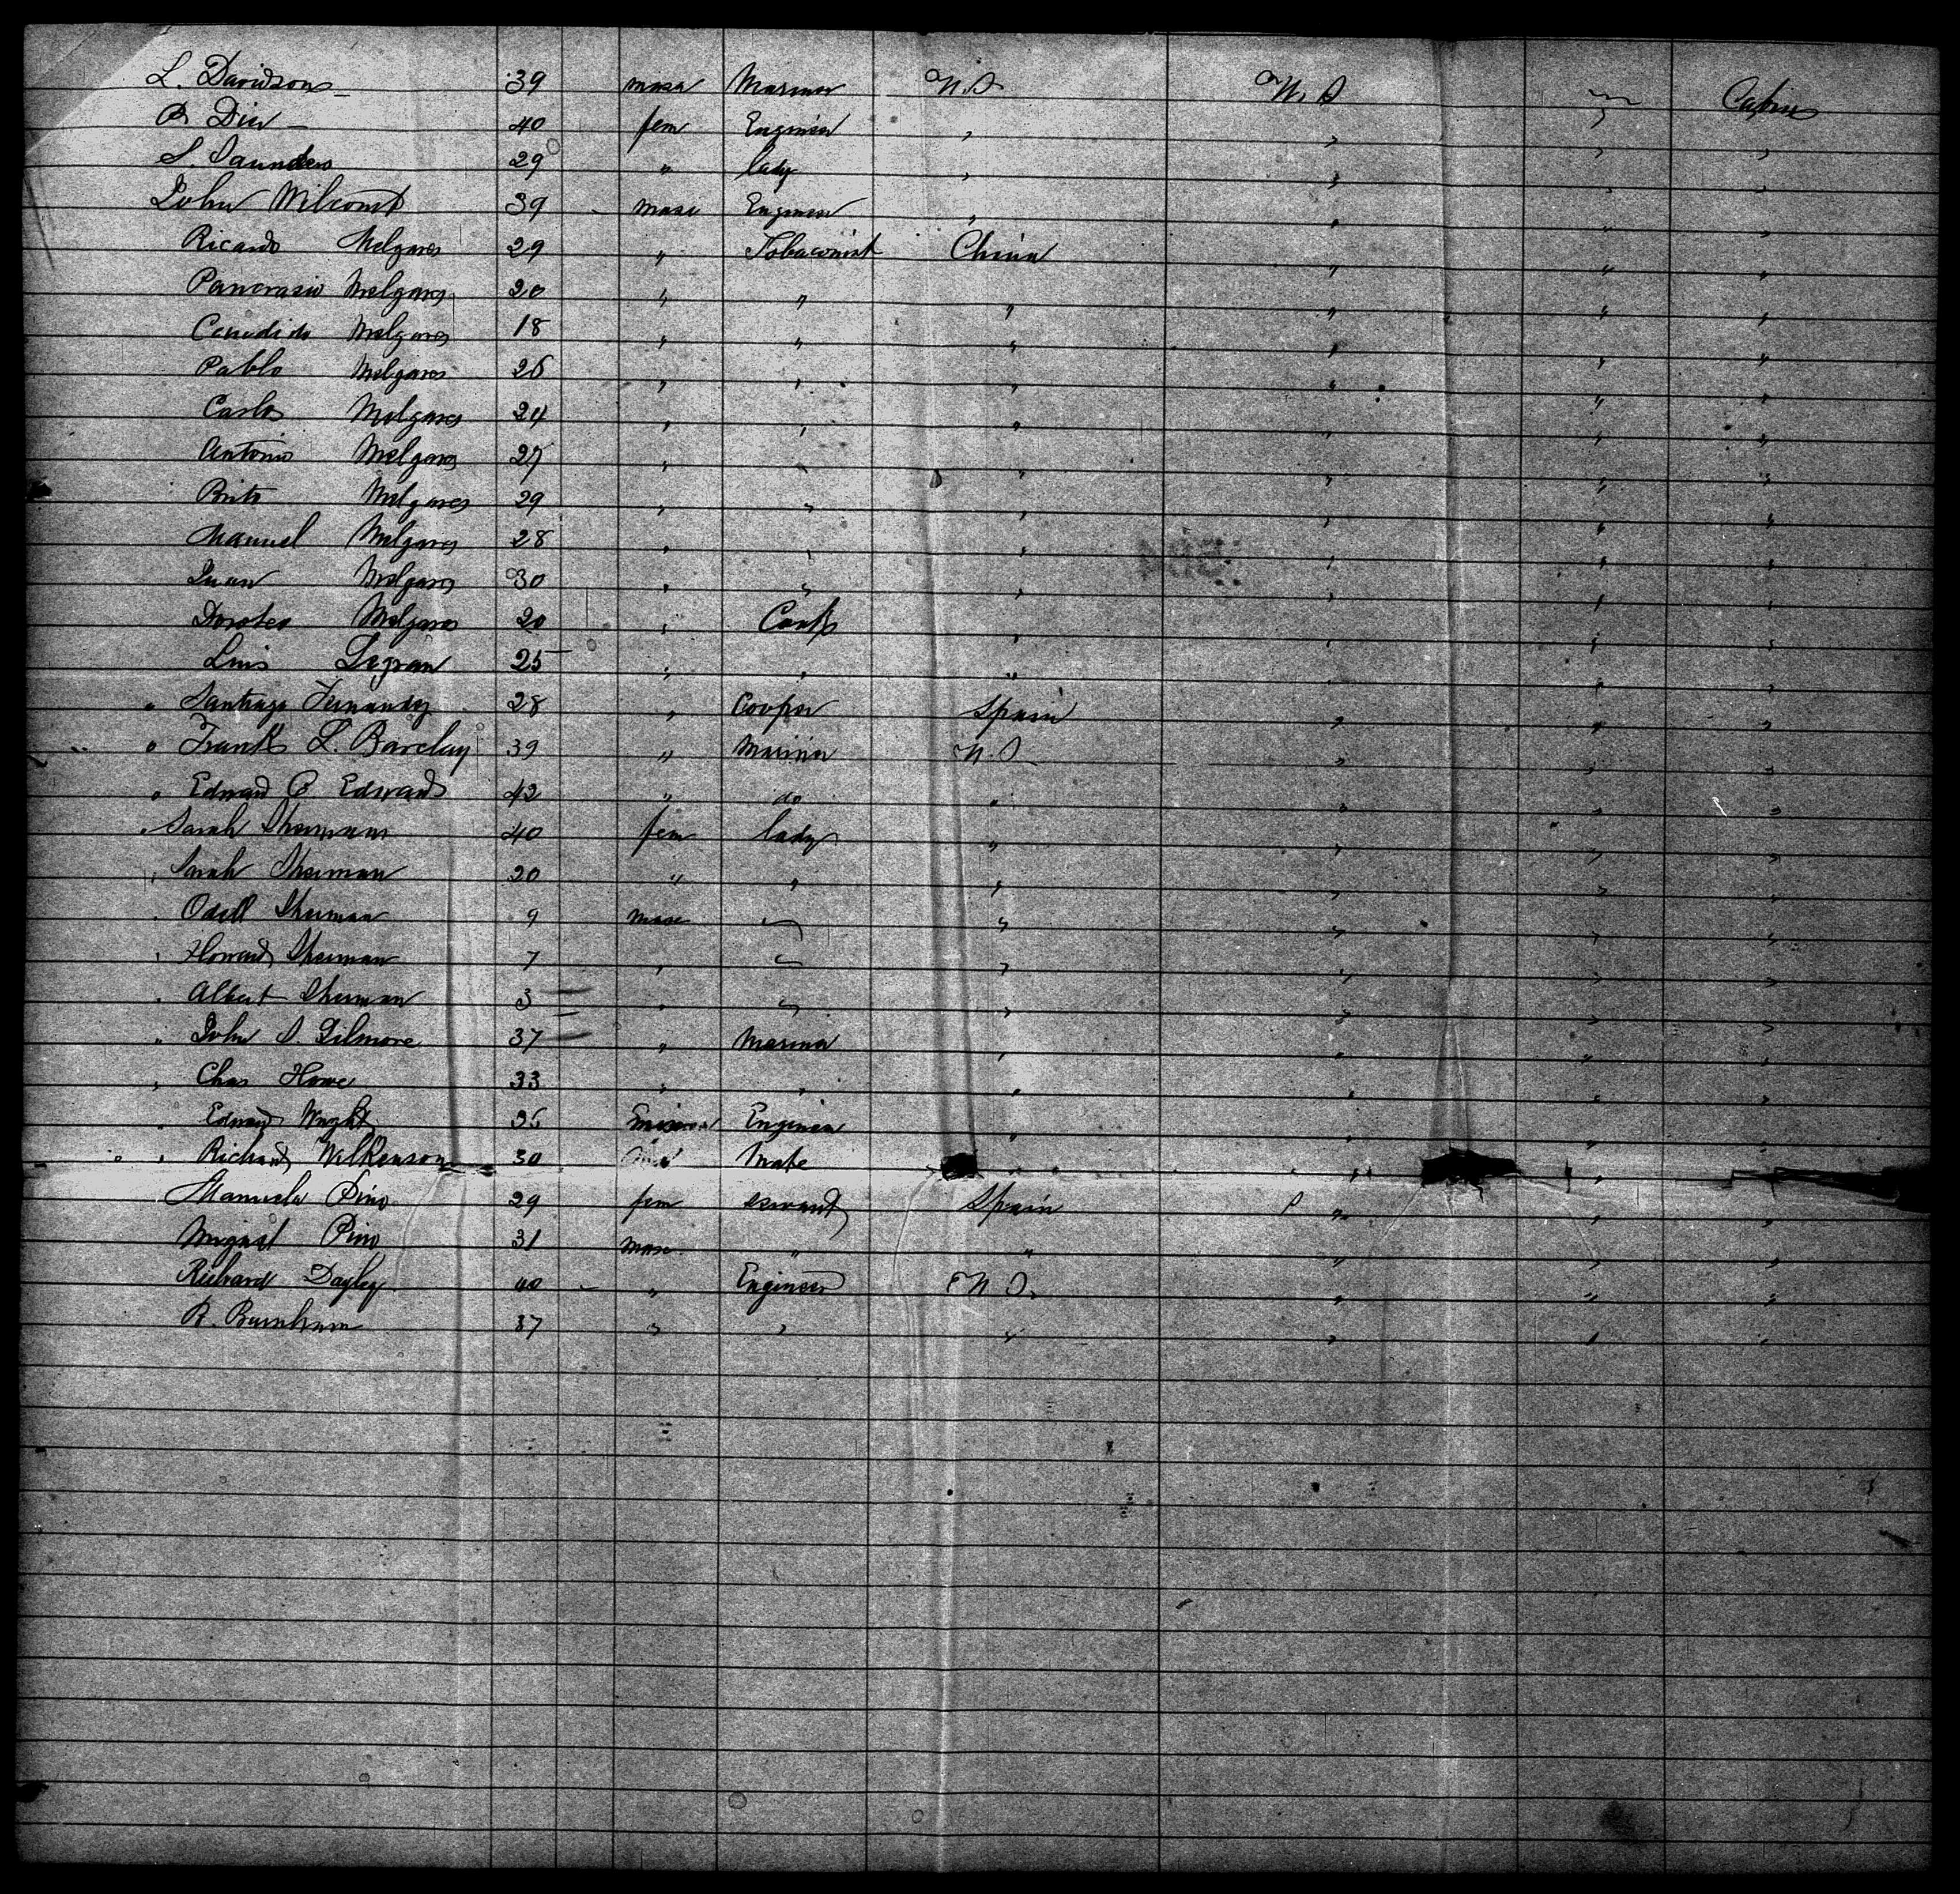 L. Davidson 39 masc Mariner U.S U.S Cabin
B Dier 40 fem Engineer " " " "
S. Saunders 29 " lady " " " "
John Wilcomb 39 masc Engineer " " " "
Ricardo Melgares 29 " Tobaconist China " " "
Pancrasio Melgares 20 " " " " " "
Candido Melgares 18 " " " " " "
Pablo Melgares 26 " " " " " "
Carlos Melgares 24 " " " " " "
Antonio Melgares 27 " " " " " "
Brito Melgares 29 " " " " " "
Manuel Melgares 28 " " " " " "
Juan Melgares 30 " " " " " "
Doroteo Melgares 20 " " " " "
Luis Legran 25 " " " " " "
" Santiago Fernandez 28 " Cooper Spain " " "
" Frank L. Barclay 39 " Mariner U.S " " "
" Edward P Edwards 42 " do " " " "
" Sarah Sherman 40 fem lady " " " "
" Sarah Sherman 20 " " " " " "
" Odell Sherman 9 masc " " " "
" Howard Sherman 7 " " " " "
" Albert Sherman 3 " " " " "
" John S. Gilmore 37 " Mariner " " " "
" Chas Howe 33 " " " " " "
" Edward Wright 35 Engineer " " " "
" " Richard Wilkenson 30 Mate " " "
Manuela Pino 29 fem servant Spain " " "
Miguel Pino 31 masc " " " " "
Richard Dayley 40 " Engineer U.S. " " "
R. Burnham 37 " " " " " "